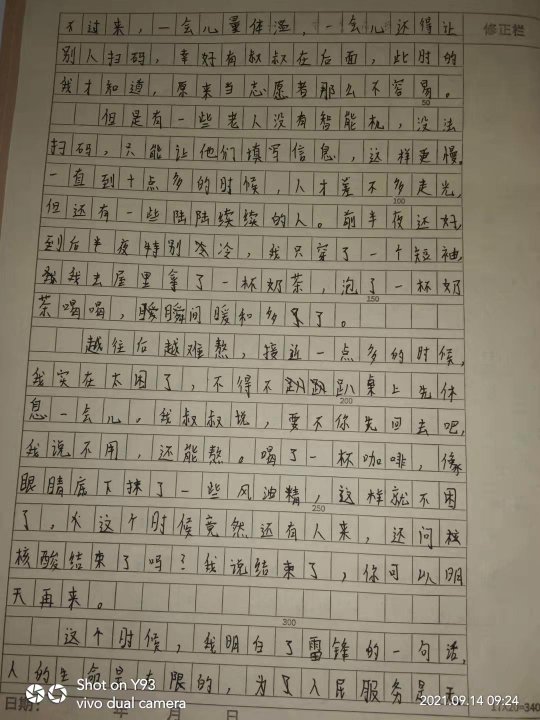 不过来，一会儿量体温，一会儿还得让
修正栏
别人扫码，幸好有叔叔在后面，此时的
我才知道，原来当志愿者那么不容易。
50
但是有一些老人没有智能机，没法
扫码，只能让他们填写信息，这样更慢。
一直到十点多的时候，人才差不多走光，
100
但还有一些陆陆续续的人。前半夜还好，
到后半夜特别冷，我只穿了一个短袖，
我去屋里拿了一杯奶茶，泡了一杯奶
150
茶喝喝，瞬间暖和多了。
越往后越难熬，接近一点多的时候，
我实在太困了，不得不趴桌上先休
200
息一会儿。我叔叔说，要不你先回去吧，
我说不用，还能熬。喝了一杯咖啡，像
眼睛底下抹了一些风油精，这样就不困
250
了，这个时候竟然还有人来，还问
核酸结束了吗？我说结束了，你可以明
天再来。
300
这个时候，我明白了雷锋的一句话，
人的生命是有限的，为了人民服务是无
日期： 年 月 日
17×20=340
Shot on Y93
vivo dual camera
2021.09.14 09:24